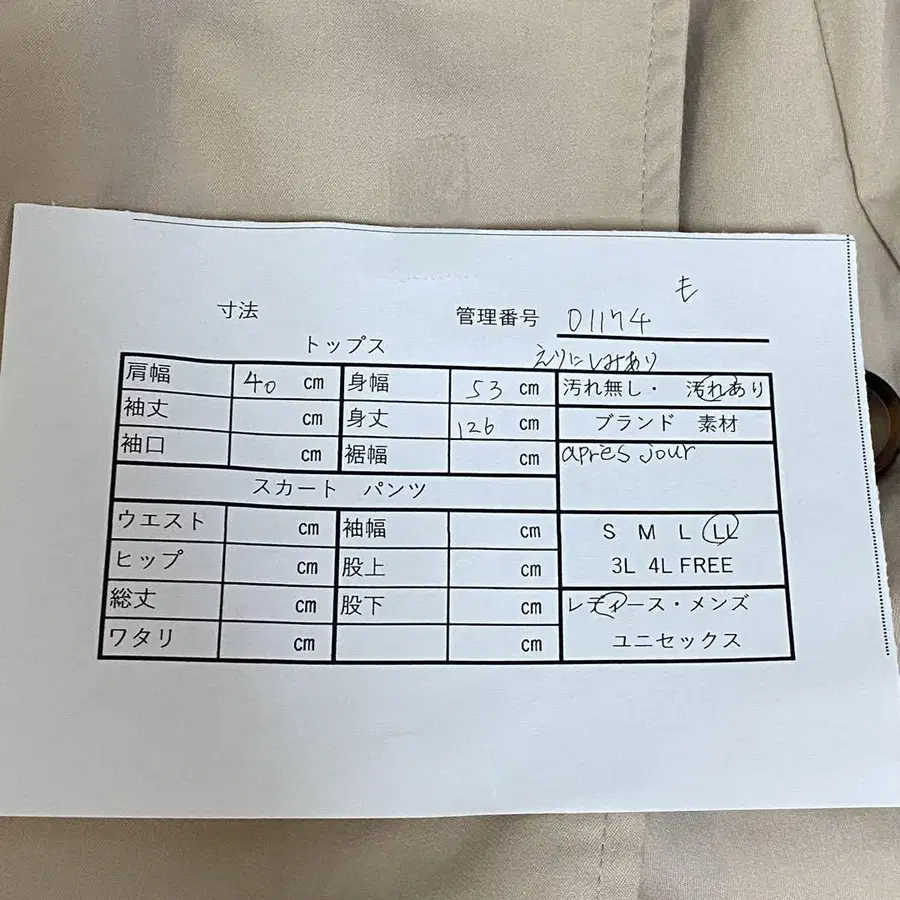 も
寸法 管理番号 01174
トップス えりにしみあり
肩幅 40 cm 身幅 53 cm 汚れ無し・ 汚れあり
袖丈 cm 身丈 126 cm ブランド 素材
袖口 cm 裾幅 cm après jour
スカート パンツ
ウエスト cm 袖幅 cm S M L LL
ヒップ cm 股上 cm 3L 4L FREE
総丈 cm 股下 cm レディース・メンズ
ワタリ cm cm ユニセックス